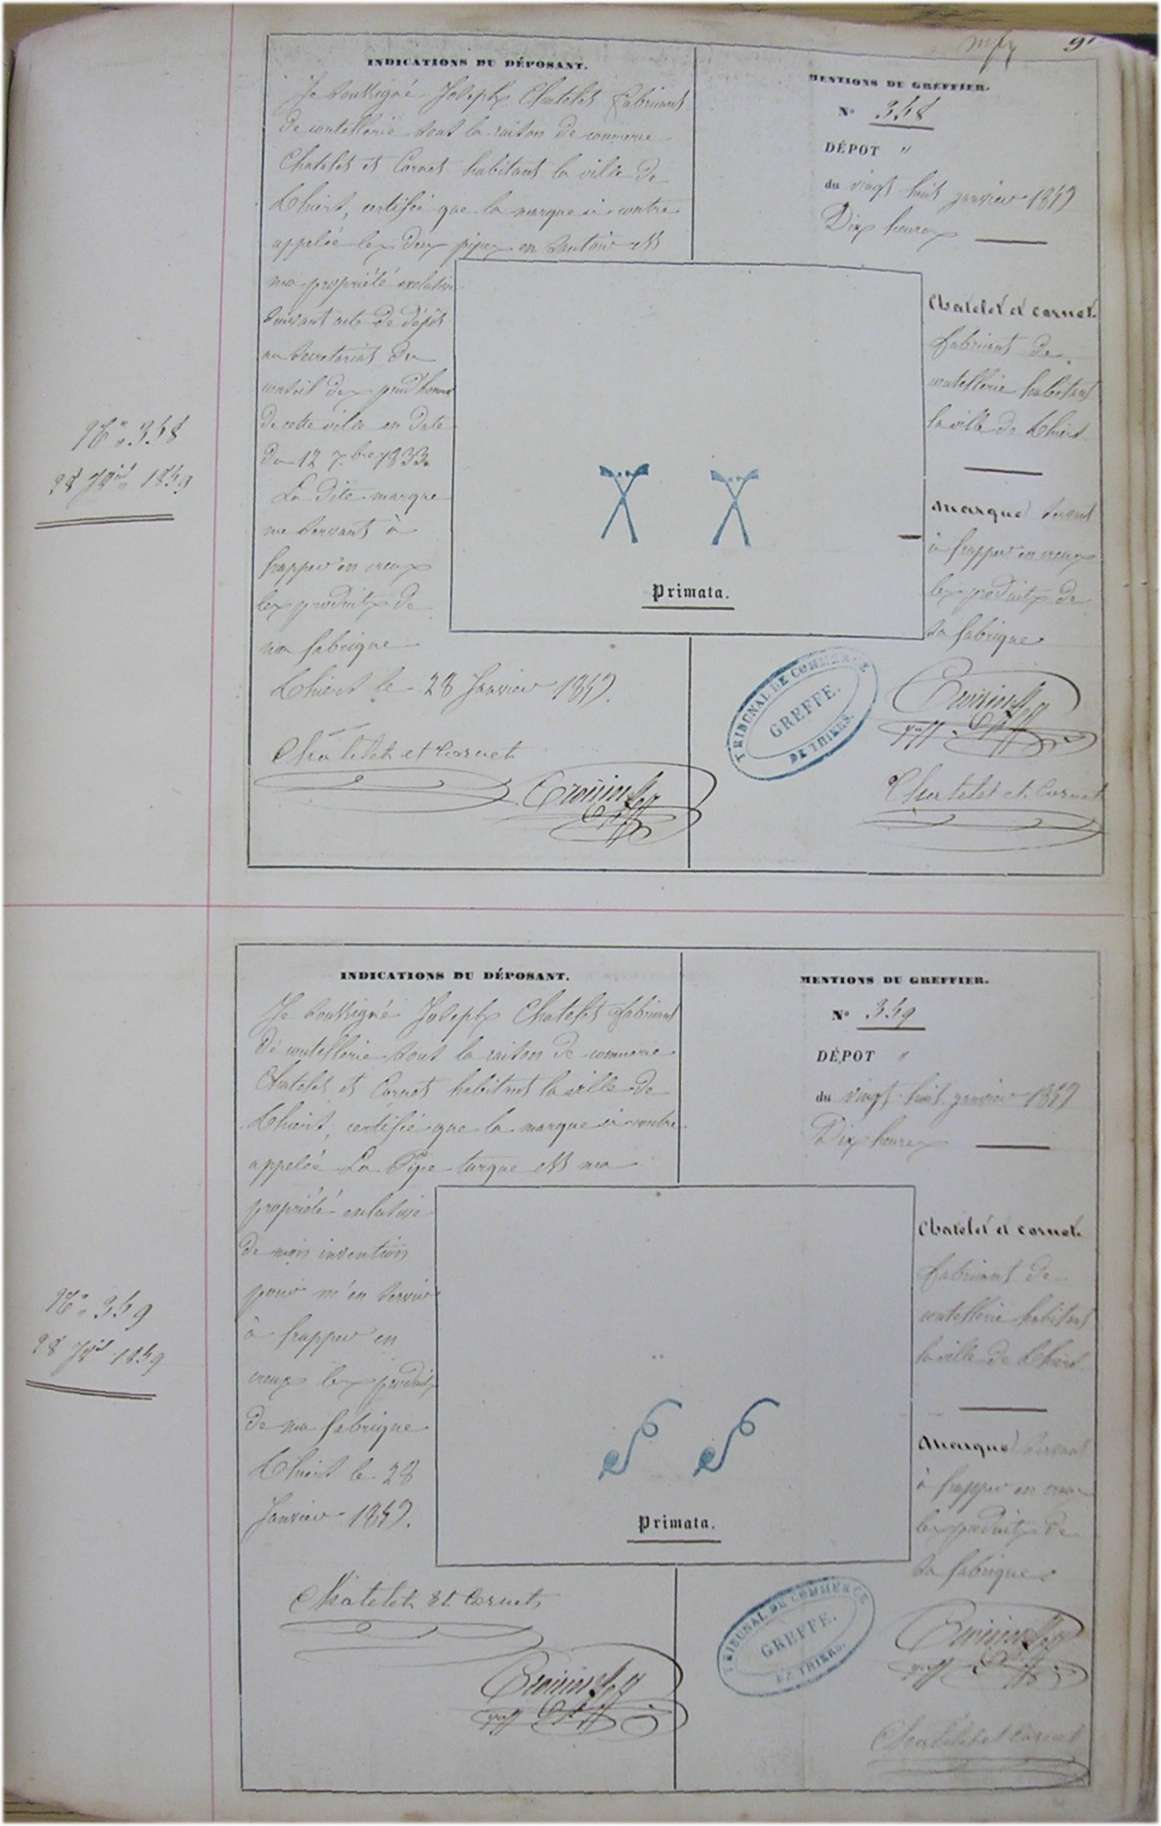 9
INDICATIONS DU DÉPOSANT.
Je soussigné Joseph Chatelet fabricant
de coutellerie sous la raison de commerce
Chatelet et Cornet habitant la ville de
Thiers, certifie que la marque ci contre
appelée les deux pipes en sautoir est
ma propriété exclusive
suivant acte de dépôt
au secrétariat du
conseil des prud'homes
de cette ville en date
du 12 7.bre 1833.
La dite marque
me servant à
frapper en creux
les produits de
ma fabrique
Thiers le 28 Janvier 1859.
Chatelet et Cornet
MENTIONS DU GREFFIER.
N° 358
DÉPOT "
du vingt huit janvier 1859
Dix heures
Chatelet et Cornet
fabricant de
coutellerie habitant
la ville de Thiers
Marque servant
à frapper en creux
les produits de
sa fabrique
Primata.
TRIBUNAL DE COMMERCE
GREFFE.
DE THIERS.
Chatelet et Cornet
N° 358
28 Jer 1859
INDICATIONS DU DÉPOSANT.
Je soussigné Joseph Chatelet fabricant
de coutellerie sous la raison de commerce
Chatelet et Cornet habitant la ville de
Thiers, certifie que la marque ci contre
appelée La Pipe turque est ma
propriété exclusive
de mon invention
pour m'en servir
à frapper en
creux les produits
de ma fabrique
Thiers le 28
Janvier 1859.
Chatelet et Cornet
MENTIONS DU GREFFIER.
N° 359
DÉPOT "
du vingt huit janvier 1859
Dix heures
Chatelet et Cornet
fabricant de
coutellerie habitant
la ville de Thiers
Marque servant
à frapper en creux
les produits de
sa fabrique
Primata.
TRIBUNAL DE COMMERCE
GREFFE.
DE THIERS.
Chatelet et Cornet
N° 359
28 Jer 1859